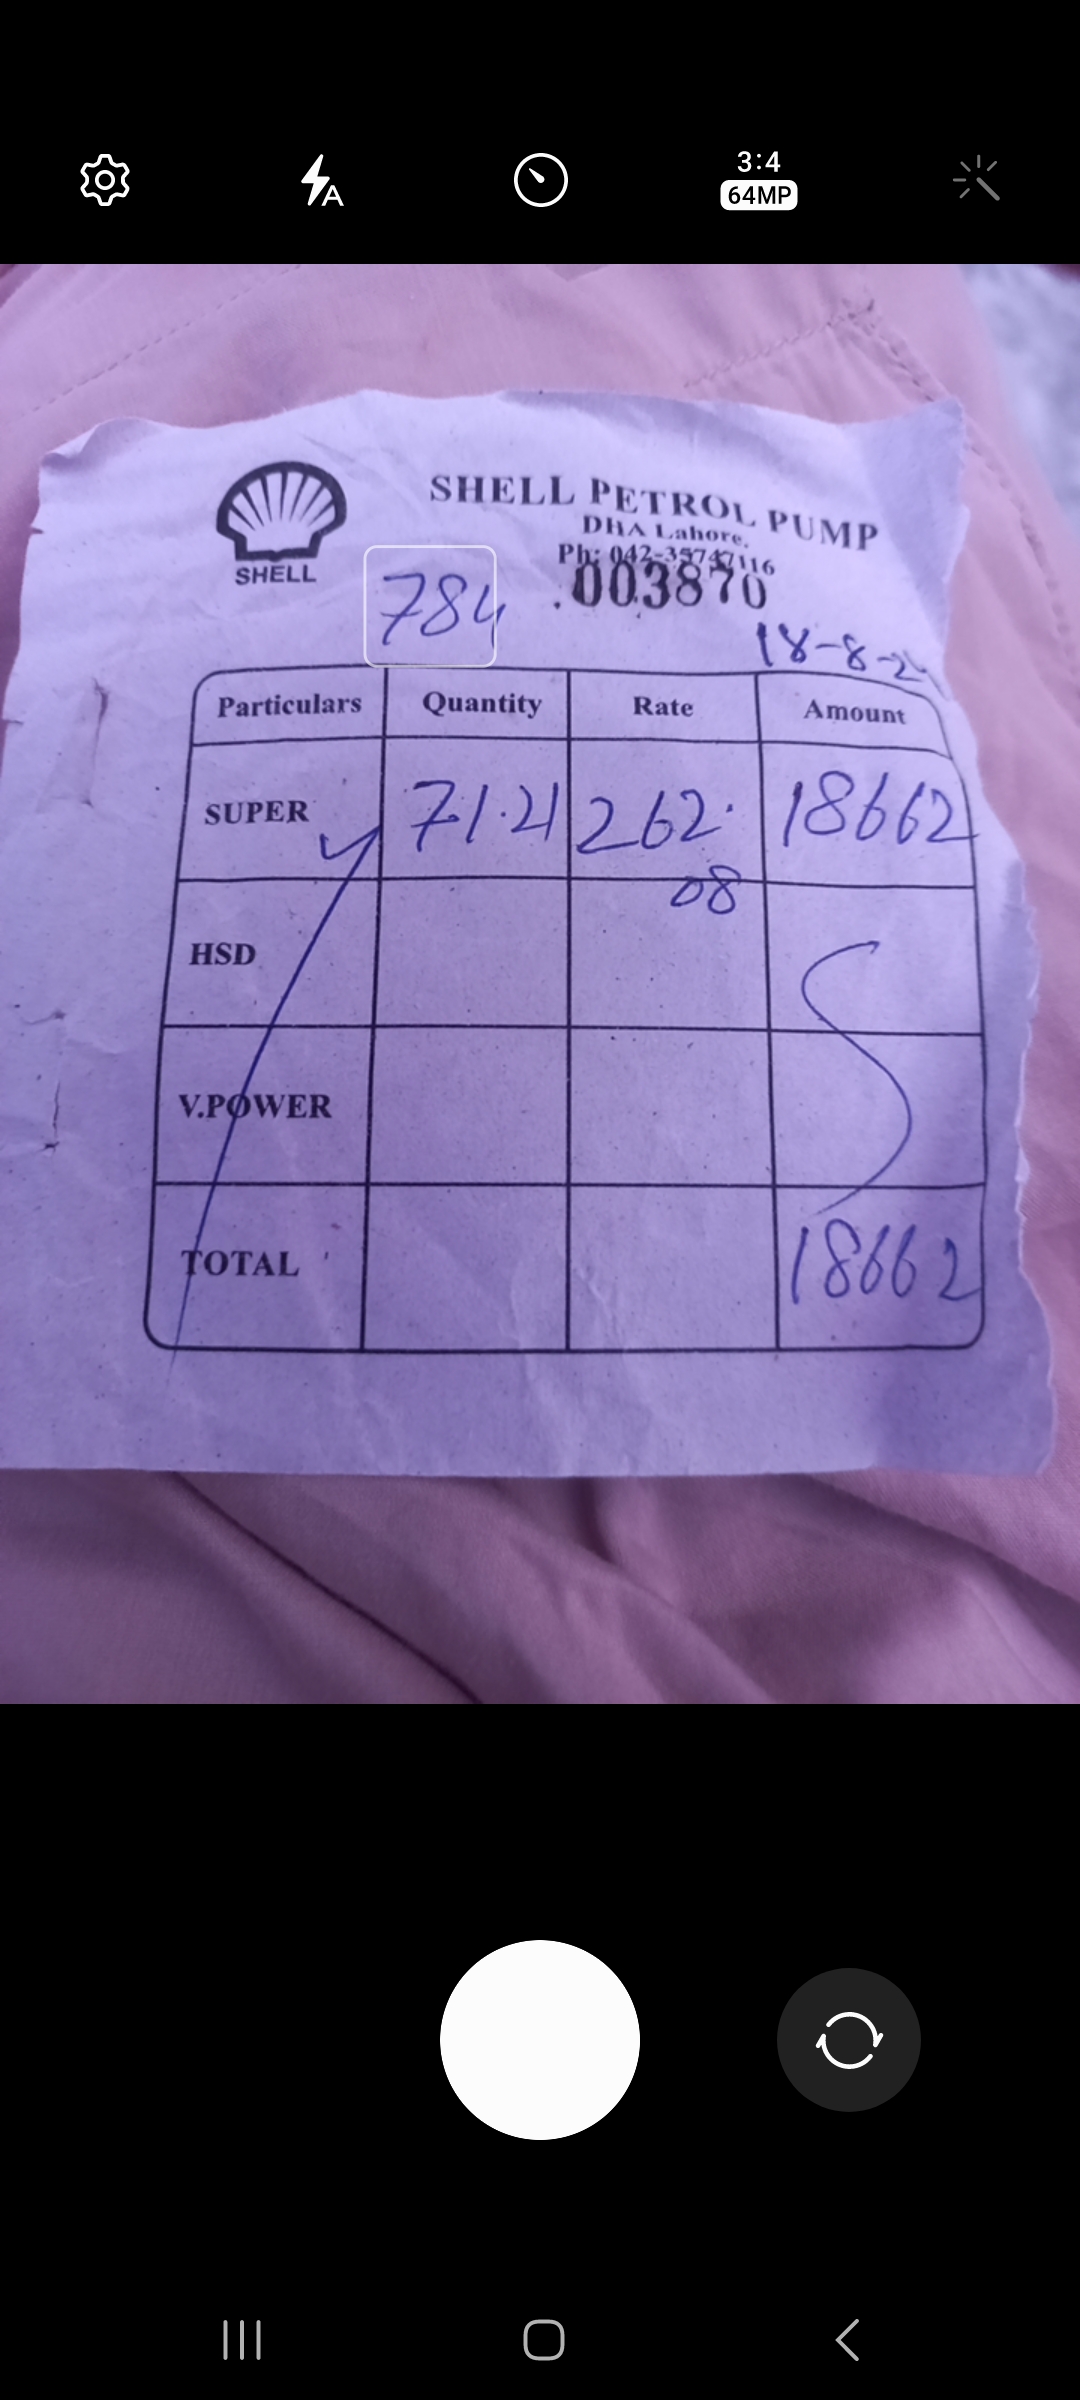 3:4
64MP
SHELL
SHELL PETROL PUMP
DHA Lahore.
Ph: 042-35747116
784
003870
18-8-2
Particulars Quantity Rate Amount
SUPER 71.21 262.08 18662
HSD
V.POWER
TOTAL 18662